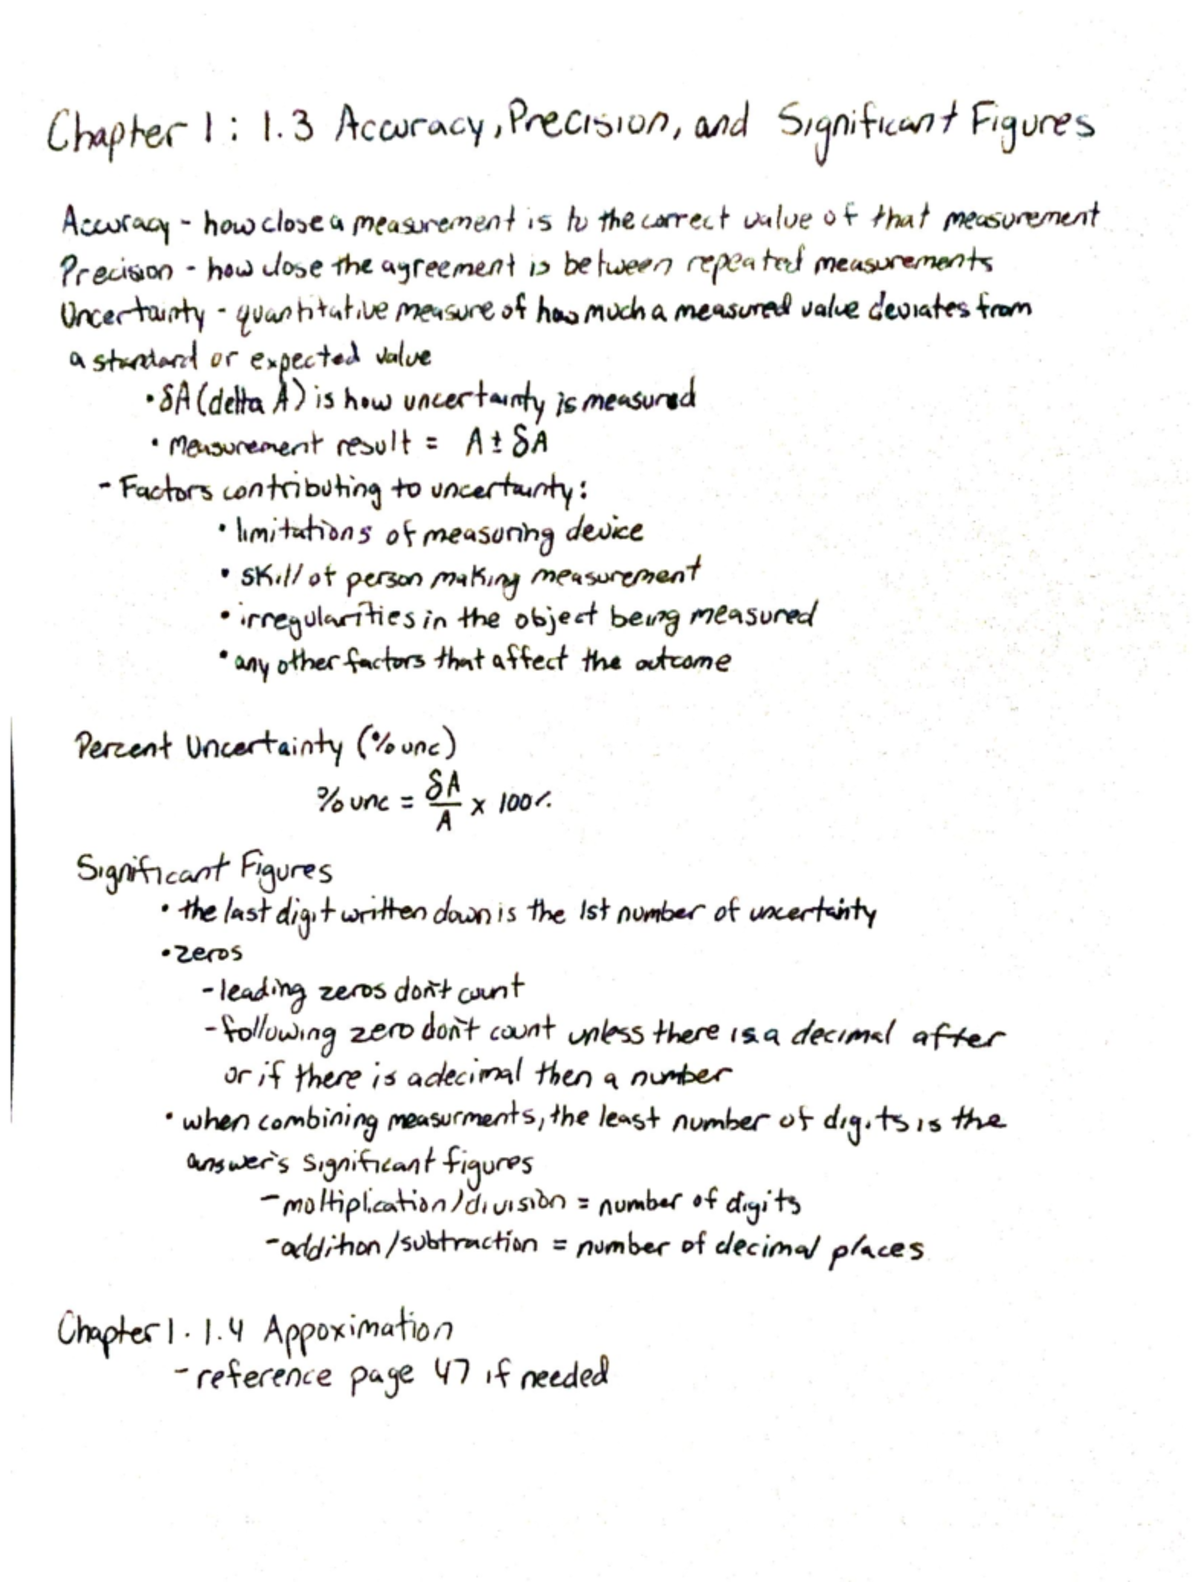 Chapter 1: 1.3 Accuracy, Precision, and Significant Figures
Accuracy - how close a measurement is to the correct value of that measurement
Precision - how close the agreement is between repeated measurements
Uncertainty - quantitative measure of how much a measured value deviates from
a standard or expected value
• δA (delta A) is how uncertainty is measured
• Measurement result = A ± δA
- Factors contributing to uncertainty:
• limitations of measuring device
• skill of person making measurement
• irregularities in the object being measured
• any other factors that affect the outcome
Percent Uncertainty (% unc)
% unc = δA/A x 100%
Significant Figures
• the last digit written down is the 1st number of uncertainty
• zeros
- leading zeros don't count
- following zero don't count unless there is a decimal after
or if there is a decimal then a number
• when combining measurments, the least number of digits is the
answer's significant figures
- multiplication/division = number of digits
- addition/subtraction = number of decimal places
Chapter 1. 1.4 Appoximation
- reference page 47 if needed